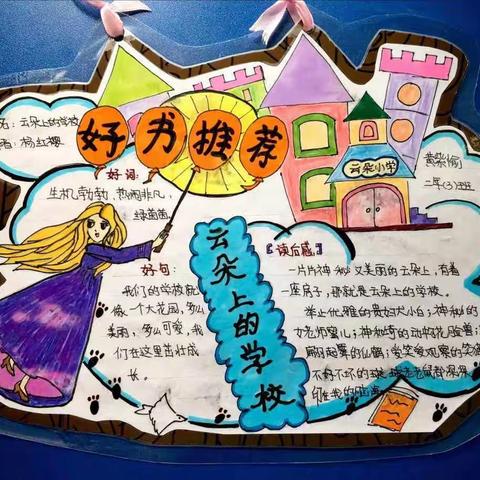 好书推荐
名：云朵上的学校
者：杨红樱
云朵小学
二年(3)班
好词：
生机勃勃、热闹非凡、
绿茵茵
好句：
我们的学校就
像一个大花园，多么
美丽，多么可爱，我
们在这里茁壮成
长。
云朵上的学校
【读后感】
一片片神秘又美丽的云朵上，有着
一座房子，那就是云朵上的学校。
举止优雅的贵妇犬小白；神秘的
女老师蜜儿；神秘奇的动物花脸香；
翩翩起舞的仙鹤；爱笑爱观察的笑猫
不